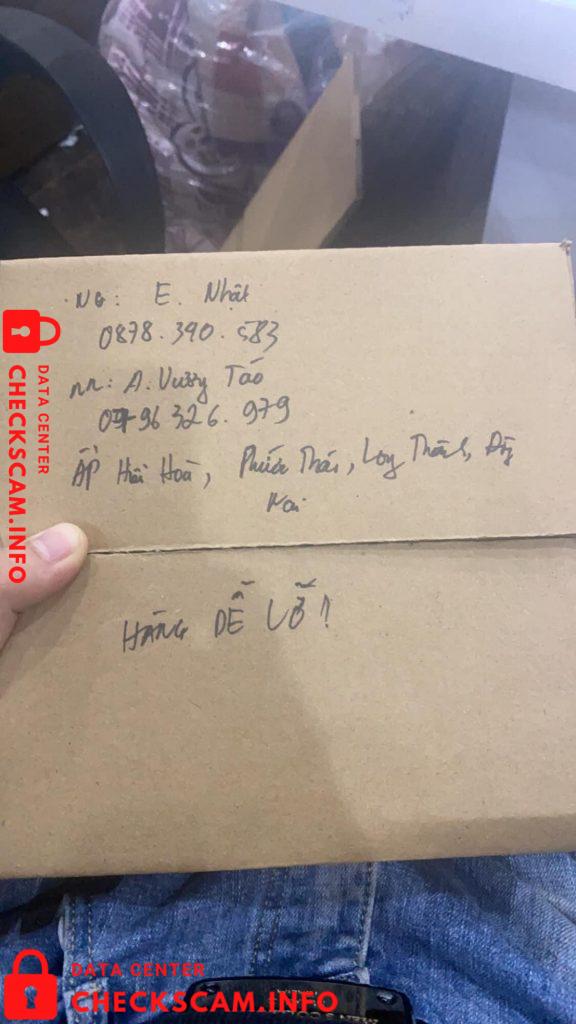 NG: E. Nhật
0878.390.583
NN: A. Vương Táo
0796 326.979
ẤP Hiền Hoà, Phước Thái, Long Thành, Đồng
Nai
HÀNG DỄ VỠ!
DATA CENTER
CHECKSCAM.INFO
DATA CENTER
CHECKSCAM.INFO